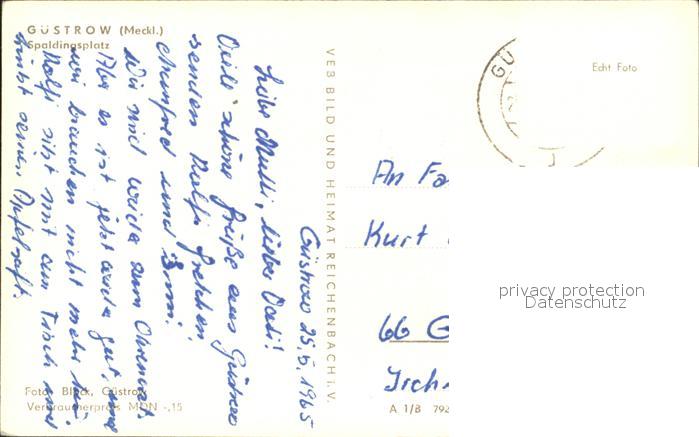 GÜSTROW (Meckl.)
Spaldingsplatz
Güstrow 25.5.1965
Liebe Mutti, lieber Vati!
Viele schöne Grüße aus Güstrow
senden Rolfi Gretchen
Manfred und
Wir sind wieder zum Ohrenarzt.
Aber es ist jetzt wieder gut, und
wir brauchen nicht mehr hin.
Rolfi sitzt mit am Tisch und
trinkt seinen Apfelsaft.
Foto: Black, Güstrow
Verbraucherpreis MDN -,15
VEB BILD UND HEIMAT REICHENBACH i. V.
Echt Foto
GÜ
An Fa
Kurt
66 G
Irch
A 1/B 792
privacy protection
Datenschutz